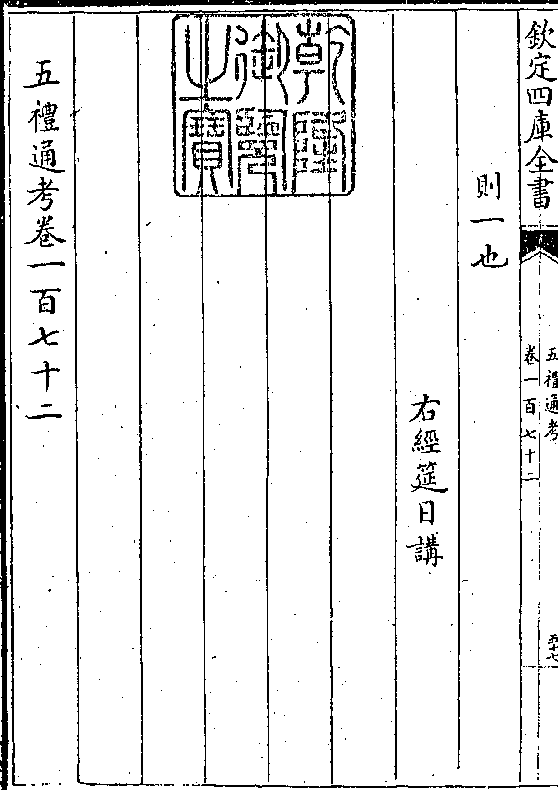 欽定四庫全書
五禮通考
卷一百七十二
則一也
右經筵日講
乾隆御覽之寶
五禮通考卷一百七十二